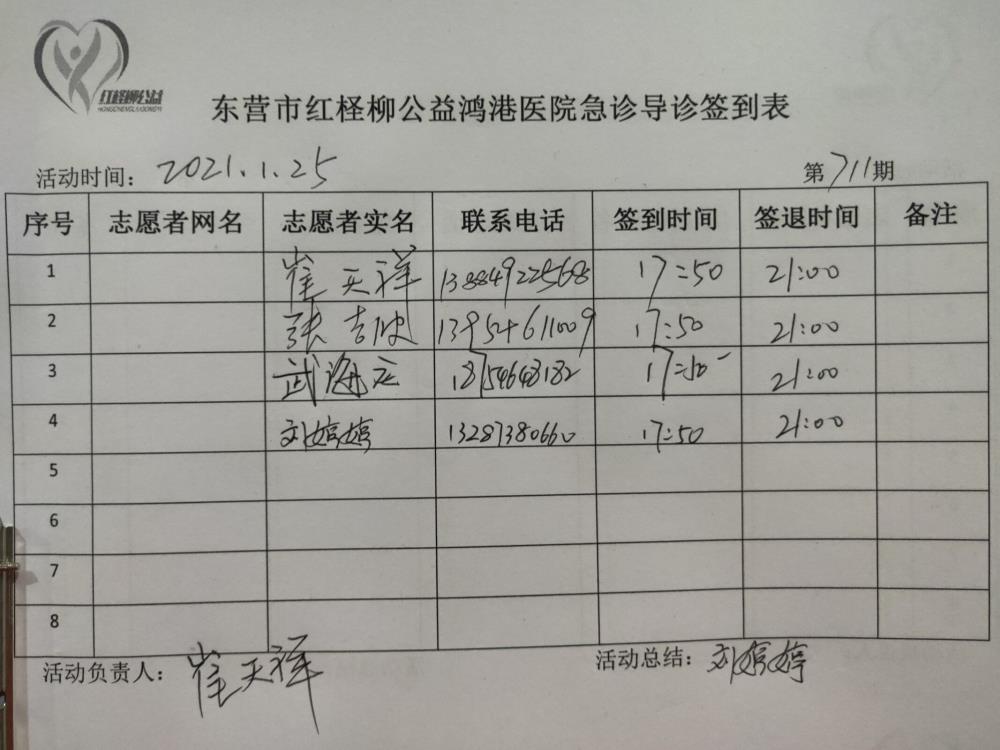 红柽柳公益
HONGCHENGLIUGONGYI
东营市红柽柳公益鸿港医院急诊导诊签到表
活动时间：2021.1.25 第711期
序号 志愿者网名 志愿者实名 联系电话 签到时间 签退时间 备注
1 崔天祥 13884922568 17:50 21:00
2 张吉 13954611009 17:50 21:00
3 武海 18754648182 17:50 21:00
4 刘婷婷 13287380660 17:50 21:00
5
6
7
8
活动负责人：崔天祥 活动总结：刘婷婷